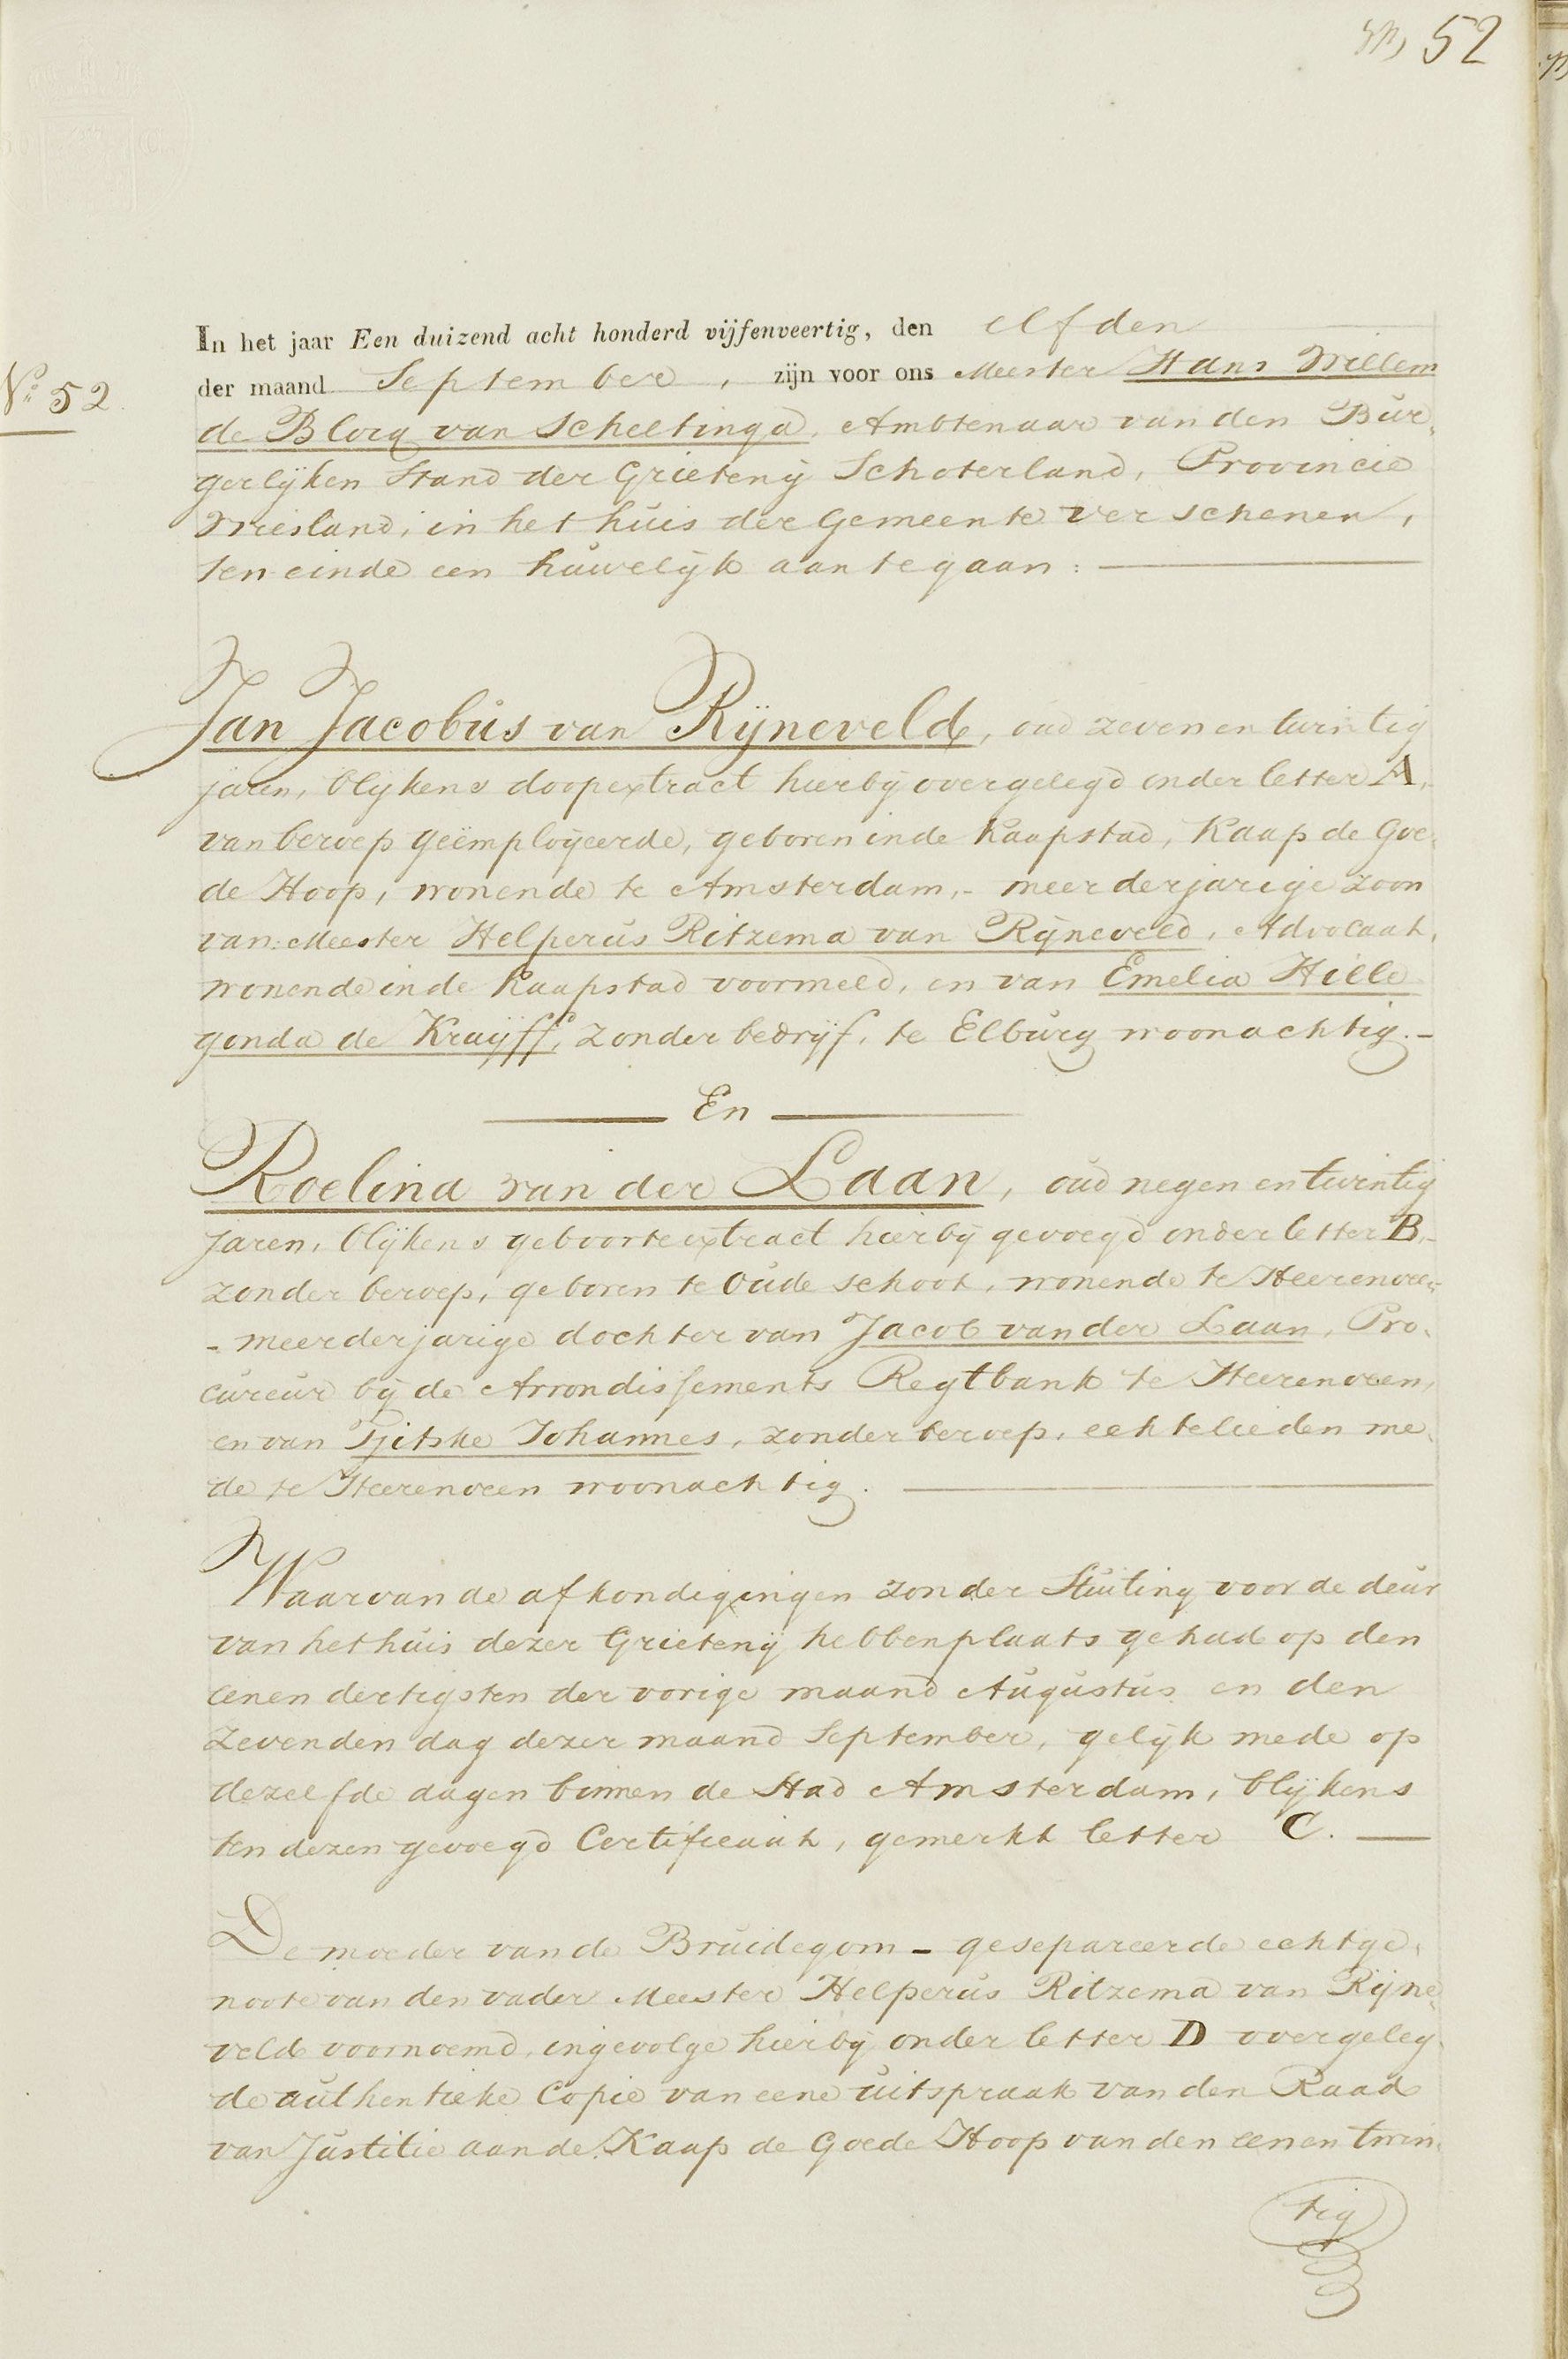 52
In het jaar Een duizend acht honderd vijfenveertig, den elfden
der maand September, zijn voor ons Meester Hans Willem
No 52
de Blocq van Scheltinga, Ambtenaar van den Bur,
gerlijken Stand der Grietenij Schoterland, Provincie
Vriesland, in het huis der Gemeente verschenen,
ten einde een huwelijk aan te gaan:
Jan Jacobus van Rijneveld, oud zeven en twintig
jaren, blijkens doopextract hierbij overgelegd onder letter A,
van beroep geëmployeerde, geboren in de Kaapstad, Kaap de Goe,
de Hoop, wonende te Amsterdam, - meerderjarige zoon
van Meester Helperus Ritzema van Rijneveld, Advocaat,
wonende in de Kaapstad voormeld, en van Emelia Hille
gonda de Kruijff, zonder bedrijf, te Elburg woonachtig. -
En
Roelina van der Laan, oud negen en twintig
jaren, blijkens geboorteextract hierbij gevoegd onder letter B, -
zonder beroep, geboren te Oudeschoot, wonende te Heerenveen
- meerderjarige dochter van Jacob van der Laan, Pro,
cureur bij de Arrondissements Regtbank te Heerenveen,
en van Tjitske Johannes, zonder beroep, echtelieden me,
de te Heerenveen woonachtig.
Waarvan de afkondigingen zonder Stuiting voor de deur
van het huis dezer Grietenij hebben plaats gehad op den
eenen dertigsten der vorige maand Augustus en den
zevenden dag dezer maand September, gelijk mede op
dezelfde dagen binnen de Stad Amsterdam, blijkens
ten dezen gevoegd Certificaat, gemerkt letter C.
De moeder van de Bruidegom - gesepareerde echtge,
noote van den vader Meester Helperus Ritzema van Rijne,
veld voornoemd, ingevolge hierbij onder letter D overgeleg,
de authentieke Copie van eene uitspraak van den Raad
van Justitie aan de Kaap de Goede Hoop van den eenen twin,
tig